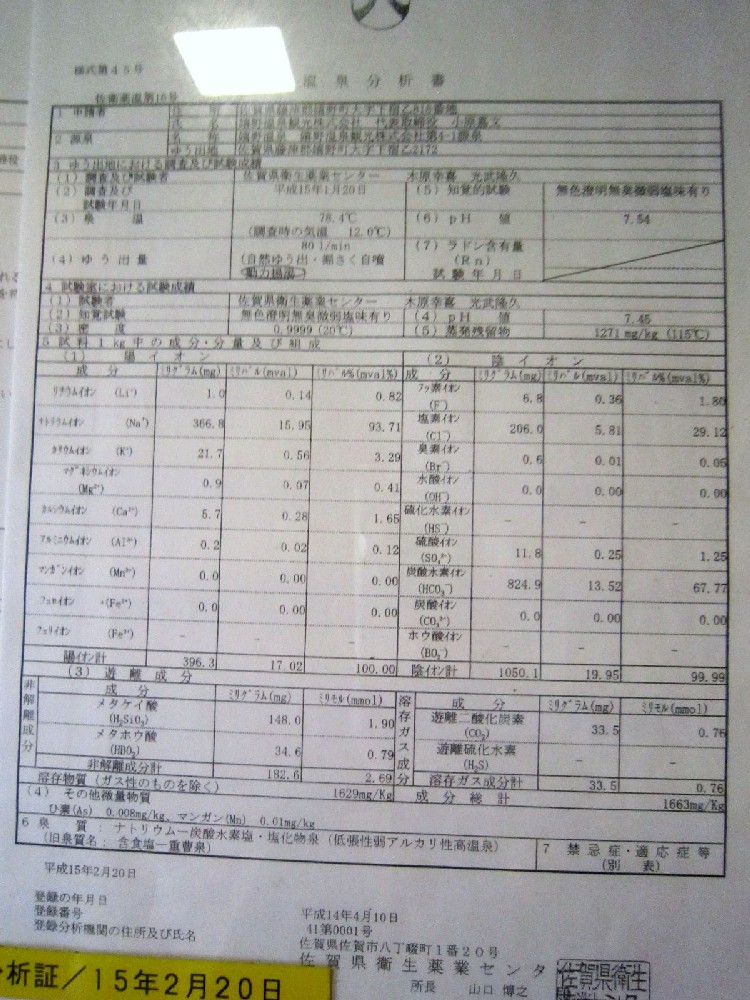 様式第45号
温泉分析書
佐衛薬温第16号
1 申請者 住所 佐賀県藤津郡嬉野町大字下宿乙818番地
氏名 嬉野温泉観光株式会社 代表取締役 小原嘉文
2 源泉 名称 嬉野温泉 嬉野温泉観光株式会社第4-1源泉
ゆう出地 佐賀県藤津郡嬉野町大字下宿乙2172
3 ゆう出地における調査及び試験成績
(1) 調査及び試験者 佐賀県衛生薬業センター 木原幸喜 光武隆久
(2) 調査及び試験年月日 平成15年1月20日 (5) 知覚的試験 無色澄明無臭微弱塩味有り
(3) 泉温 78.4℃ (6) pH値 7.54
(調査時の気温 12.0℃)
(4) ゆう出量 80 l/min (7) ラドン含有量
(自然ゆう出・掘さく自噴 (Rn)
動力揚湯) 試験年月日
4 試験室における試験成績
(1) 試験者 佐賀県衛生薬業センター 木原幸喜 光武隆久
(2) 知覚試験 無色澄明無臭微弱塩味有り (4) pH値 7.45
(3) 密度 0.9999 (20℃) (5) 蒸発残留物 1271 mg/kg (115℃)
5 試料1kg中の成分・分量及び組成
(1) 陽イオン (2) 陰イオン
成分 ミリグラム(mg) ミリバル(mval) ミリバル%(mval%) 成分 ミリグラム(mg) ミリバル(mval) ミリバル%(mval%)
リチウムイオン (Li⁺) 1.0 0.14 0.82 フッ素イオン (F⁻) 6.8 0.36 1.80
ナトリウムイオン (Na⁺) 366.8 15.95 93.71 塩素イオン (Cl⁻) 206.0 5.81 29.12
カリウムイオン (K⁺) 21.7 0.56 3.29 臭素イオン (Br⁻) 0.6 0.01 0.05
マグネシウムイオン (Mg²⁺) 0.9 0.07 0.41 水酸イオン (OH⁻) 0.0 0.00 0.00
カルシウムイオン (Ca²⁺) 5.7 0.28 1.65 硫化水素イオン (HS⁻) - - -
アルミニウムイオン (Al³⁺) 0.2 0.02 0.12 硫酸イオン (SO₄²⁻) 11.8 0.25 1.25
マンガンイオン (Mn²⁺) 0.0 0.00 0.00 炭酸水素イオン (HCO₃⁻) 824.9 13.52 67.77
フェロイオン (Fe²⁺) 0.0 0.00 0.00 炭酸イオン (CO₃²⁻) 0.0 0.00 0.00
フェリイオン (Fe³⁺) - - - ホウ酸イオン (BO₂⁻) - - -
陽イオン計 396.3 17.02 100.00 陰イオン計 1050.1 19.95 99.99
(3) 遊離成分
非解離成分 成分 ミリグラム(mg) ミリモル(mmol) 溶存ガス成分 成分 ミリグラム(mg) ミリモル(mmol)
メタケイ酸 (H₂SiO₃) 148.0 1.90 遊離二酸化炭素 (CO₂) 33.5 0.76
メタホウ酸 (HBO₂) 34.6 0.79 遊離硫化水素 (H₂S) - -
非解離成分計 182.6 2.69 溶存ガス成分計 33.5 0.76
溶存物質(ガス性のものを除く) 1629mg/Kg 成分総計 1663mg/Kg
(4) その他微量物質
ひ素(As) 0.008mg/kg、マンガン(Mn) 0.01mg/kg
6 泉質:ナトリウム―炭酸水素塩・塩化物泉(低張性弱アルカリ性高温泉)
(旧泉質名:含食塩―重曹泉)
7 禁忌症・適応症等
(別表)
平成15年2月20日
登録の年月日 平成14年4月10日
登録番号 41第0001号
登録分析機関の住所及び氏名 佐賀県佐賀市八丁畷町1番20号
佐賀県衛生薬業センタ
所長 山口博之
佐賀県衛生
分析証/15年2月20日